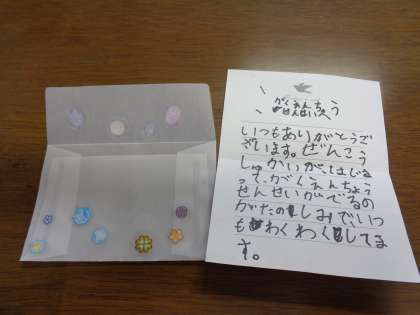 がくえんちょう
せんせいへ
いつもありがとうご
ざいます。ぜんこう
しゅうかいがはじまっ
て、がくえんちょう
せんせいがでるの
がたのしみでいつ
もわくわくしてま
す。